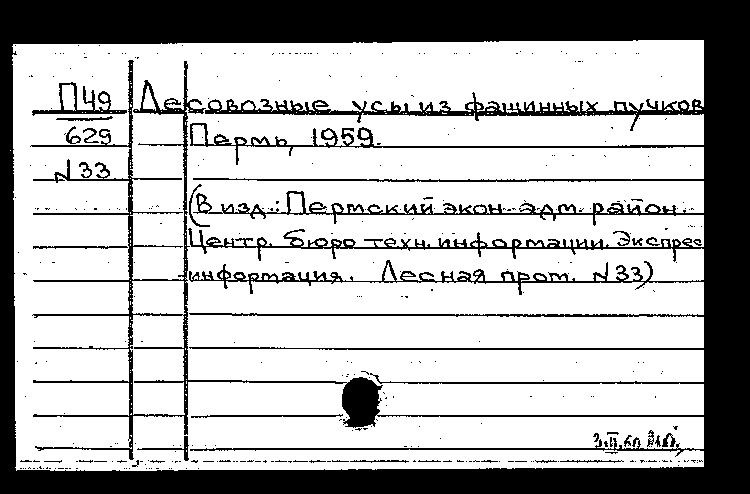 П49 Лесовозные усы из фашинных пучков
629 Пермь, 1959.
N33
(В изд.: Пермский экон. адм. район.
Центр. бюро техн. информации. Экспрес
-информация. Лесная пром. N33)
3.II.60